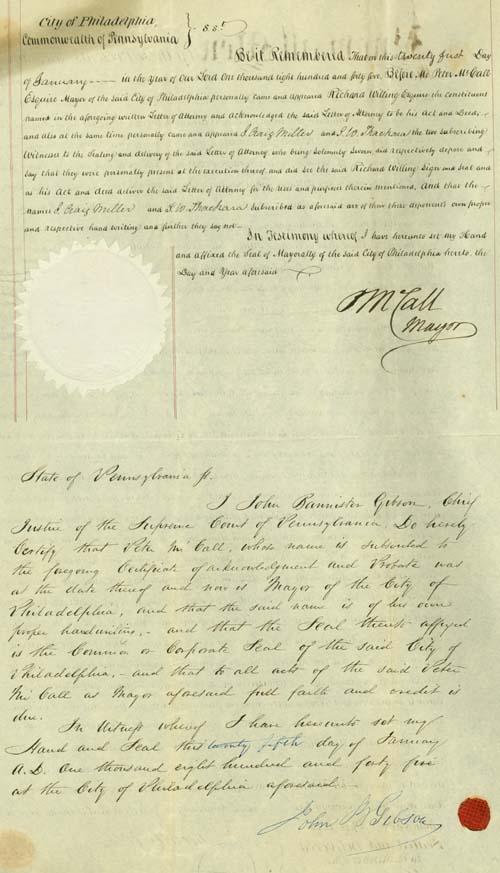 City of Philadelphia
Commonwealth of Pennsylvania } S.S.t
Be it Remembered That on this twenty first Day
of January in the Year of Our Lord One thousand eight hundred and forty five Before Me Peter McCall
Esquire Mayor of the said City of Philadelphia personally came and appeared Richard Willing Esquire the constituent
named in the aforegoing written Letter of Attorney and Acknowledged the said Letter of Attorney to be his Act and Deed,
and also at the same time personally came and appeared J. Craig Miller and J. W. Thackara the two subscribing
Witnesses to the Sealing and delivery of the said Letter of Attorney who being Solemnly Sworn did respectively depose and
Say that they were personally present at the execution thereof and did see the said Richard Willing Sign and Seal and
as his Act and deed deliver the said Letter of Attorney for the Uses and purposes therein mentioned, And that the
names J. Craig Miller and J. W. Thackara subscribed as aforesaid are of them these deponents own proper
and respective hand writing and further they say not
In Testimony whereof I have hereunto set my Hand
and affixed the Seal of Mayoralty of the said City of Philadelphia hereto, the
Day and Year aforesaid
P McCall
Mayor
State of Pennsylvania ss.
I John Bannister Gibson, Chief
Justice of the Supreme Court of Pennsylvania Do hereby
Certify that Peter McCall, whose name is subscribed to
the foregoing Certificate of acknowledgment and Probate was
at the date thereof and now is Mayor of the City of
Philadelphia, and that the said name is of his own
proper handwriting, - and that the Seal thereto affixed
is the Common or Corporate Seal of the said City of
Philadelphia, - and that to all acts of the said Peter
McCall as Mayor aforesaid full faith and credit is
due.
In Witness whereof I have hereunto set my
Hand and Seal this twenty fifth day of January
A.D. One thousand eight hundred and forty five
at the City of Philadelphia aforesaid
John B Gibson